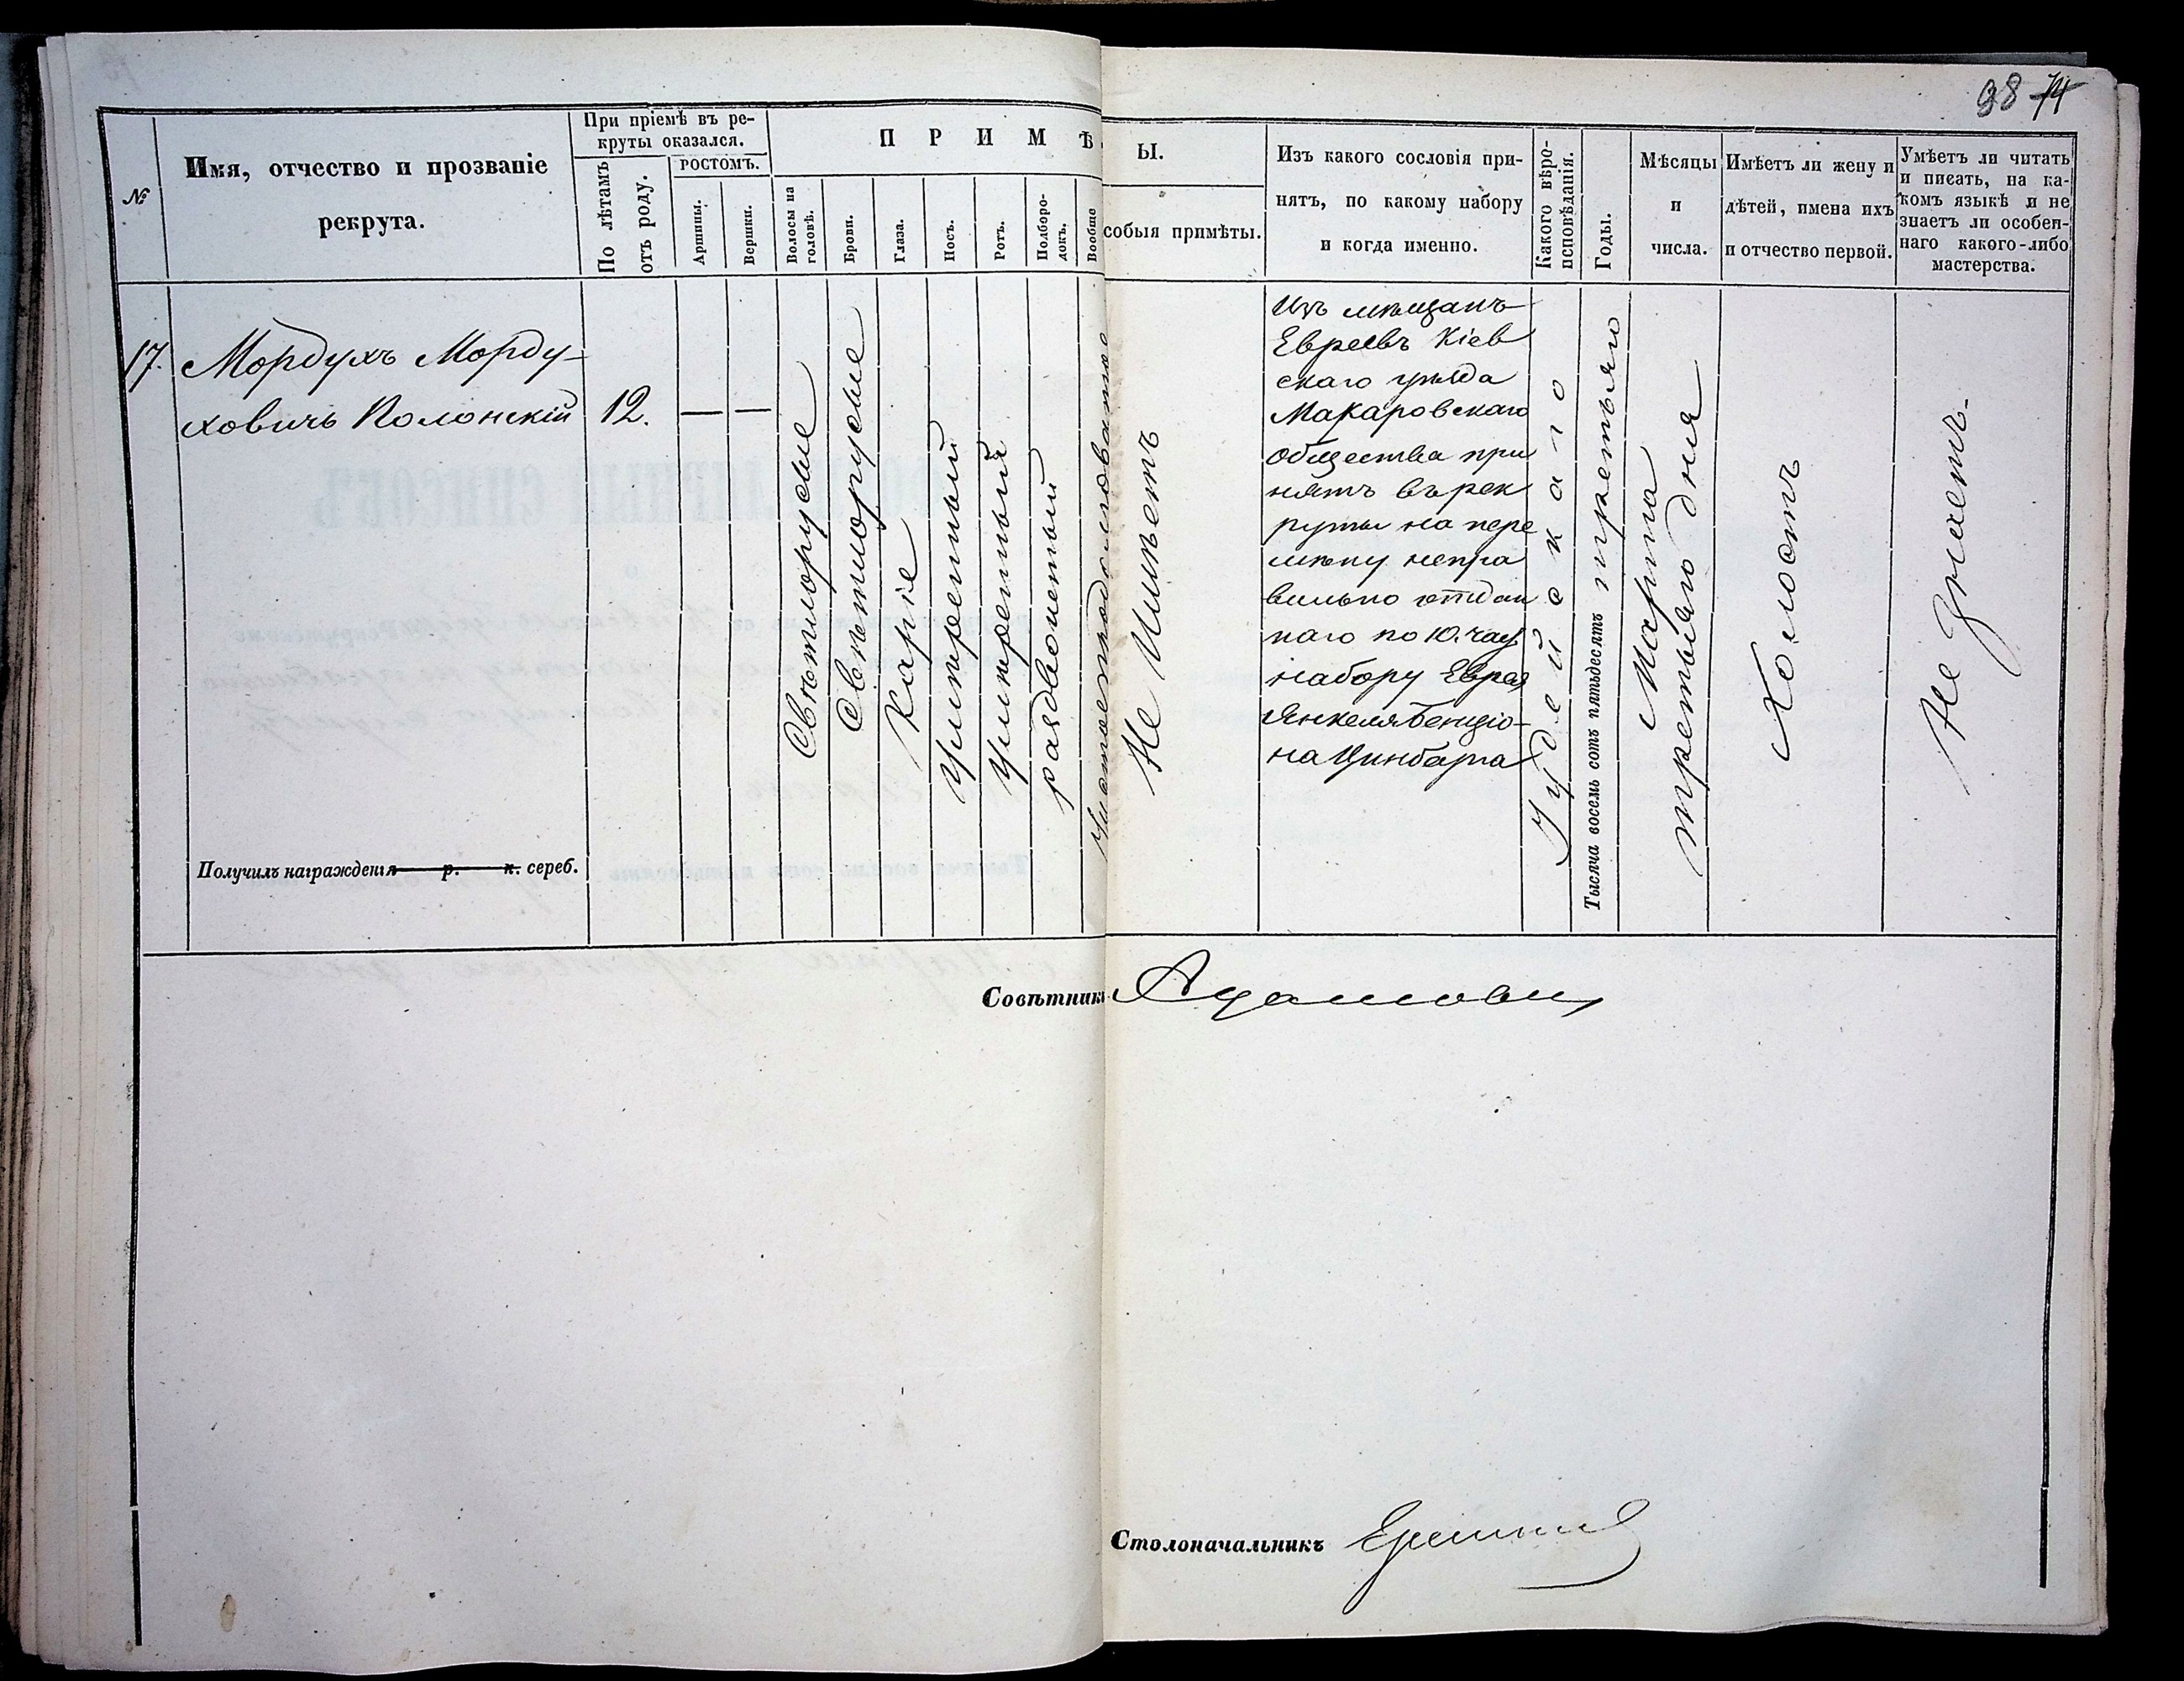 98 74
№
Имя, отчество и прозваніе
рекрута.
При пріемѣ въ ре-
круты оказался.
По лѣтамъ
отъ роду.
РОСТОМЪ.
Аршины.
Вершки.
П Р И М Ѣ
Ы.
Волосы на
головѣ.
Брови.
Глаза.
Носъ.
Ротъ.
Подборо-
докъ.
Вообще
собыя примѣты.
Изъ какого сословія при-
нятъ, по какому набору
и когда именно.
Какого вѣро-
исповѣданія.
Годы.
Мѣсяцы
и
числа.
Имѣетъ ли жену и
дѣтей, имена ихъ
и отчество первой.
Умѣетъ ли читать
и писать, на ка-
комъ языкѣ и не
знаетъ ли особен-
наго какого-либо
мастерства.
17.
Мордухъ Морду-
ховичъ Полонскій
12.
— —
Свѣтлорусые
Свѣтлорусые
Каріе
Умѣренный
Умѣренный
раздвоенный
Не Имѣетъ
Изъ мѣщанъ
Евреевъ Кіев
скаго уѣзда
Макаровскаго
общества при
нятъ въ рек
руты на пере
мѣну непра
вильно отдан
наго по 10. час.
набору Еврея
Янкеля Бенціо-
на Цинбарга
Іудейскаго
Тысяча восемь сотъ пятьдесятъ третьяго
Марта
третьяго дня
Холостъ
Не Знаетъ.
Получилъ награжденія р. к. сереб.
Совѣтникъ Адамови
Столоначальникъ